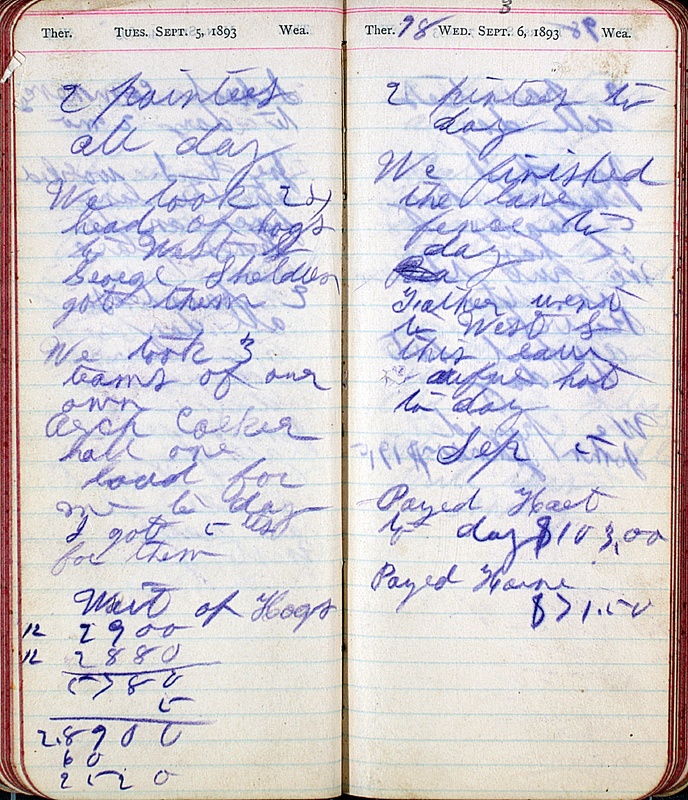 Ther. TUES. SEPT. 5, 1893 Wea.
2 painters
all day
We took 25
head of hogs
to West
George Sheldon
got them
We took 3
teams of our
own
Arch Colker
hall one
load for
me to day
I got 5
for them
Wait of Hogs
12 2900
12 2880
5780
5
2.8900
60
2520
3
Ther. 98 WED. SEPT. 6, 1893 98 Wea.
2 pinters to
day
We finished
the lane
fence to
day
Father went
to West
this eaun
aufue hot
to day
Sep 5
Payed Haet
to day $103,00
Payed Hame
$71.50